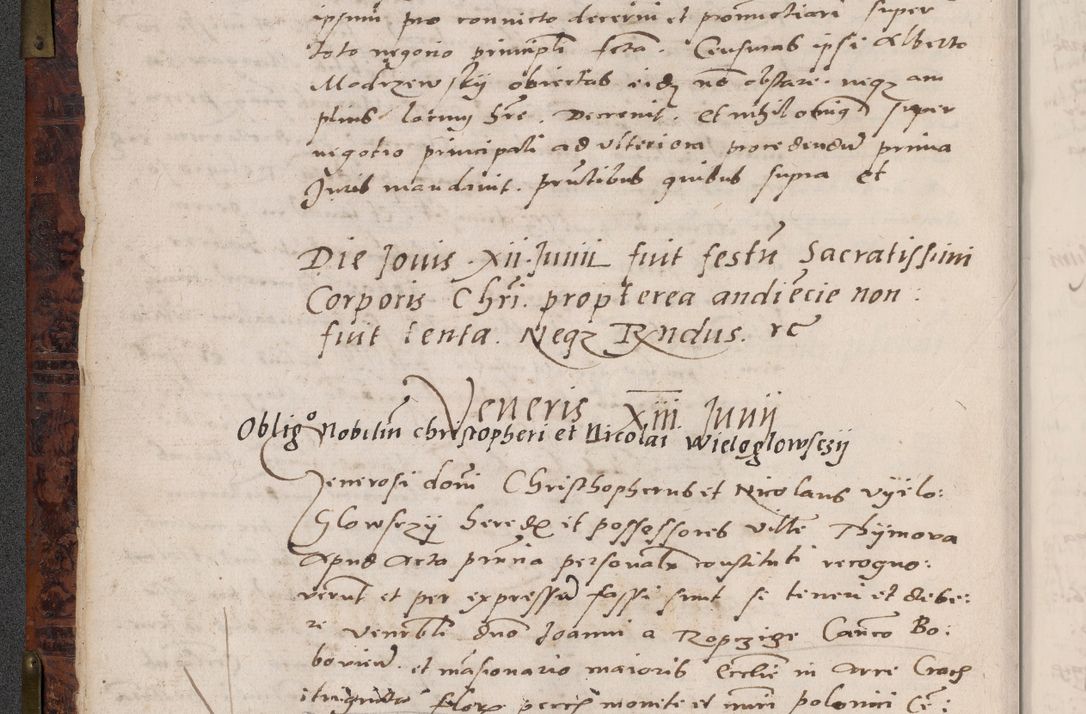 ipsum pro convicto decerni et pronunctiari super
toto negocio principli fcta. Censuras ipsi Alberto
Modrzewskij obiectas eidz no obstare. neqz am
plius locum hre. Decrevit. Et nihilominq super
negotio principali ad ulteriora procedendu prima
Juris mandavit. pntibus quibus supra et
Die Jovis XII Junii fuit festu Sacratissimi
Corporis Chri. propterea andiecie non
fuit tenta. Neqz Rndus. rc
Veneris XIII Junij
Obligo Nobiliu christopheri et Nicolai Wieloglowsczij
Generosi domi Christhopherus et Nicolaus vyelo:
Glowsczij hered et possessores ville Thymova
Apud Acta pnia personalr constituti recogno:
verut et per expressu fassi sunt se teneri et debe:
re Venerbli dno Joanni a Ropczige Canco Bo:
boviens. et mansionario maioris Ecclie in Arce Crac
florz monete et nmi polonici